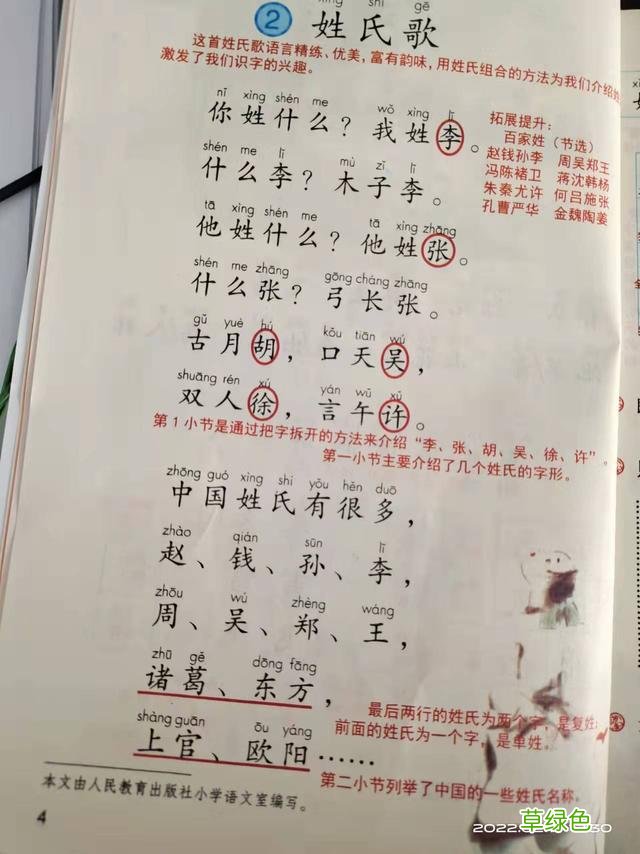 xìng shì gē
2 姓氏歌
这首姓氏歌语言精练、优美，富有韵味，用姓氏组合的方法为我们介绍
激发了我们识字的兴趣。
nǐ xìng shén me wǒ xìng lǐ
你姓什么？我姓李。
shén me lǐ mù zǐ lǐ
什么李？木子李。
tā xìng shén me tā xìng zhāng
他姓什么？他姓张。
shén me zhāng gōng cháng zhāng
什么张？弓长张。
gǔ yuè hú kǒu tiān wú
古月胡，口天吴，
shuāng rén xú yán wǔ xǔ
双人徐，言午许。
拓展提升：
百家姓（节选）
赵钱孙李 周吴郑王
冯陈褚卫 蒋沈韩杨
朱秦尤许 何吕施张
孔曹严华 金魏陶姜
第1小节是通过把字拆开的方法来介绍“李、张、胡、吴、徐、许”。
第一小节主要介绍了几个姓氏的字形。
zhōng guó xìng shì yǒu hěn duō
中国姓氏有很多，
zhào qián sūn lǐ
赵、钱、孙、李，
zhōu wú zhèng wáng
周、吴、郑、王，
zhū gě dōng fāng
诸葛、东方，
shàng guān ōu yáng
上官、欧阳……
最后两行的姓氏为两个字，是复姓；
前面的姓氏为一个字，是单姓。
第二小节列举了中国的一些姓氏名称。
本文由人民教育出版社小学语文室编写。
4
草绿色